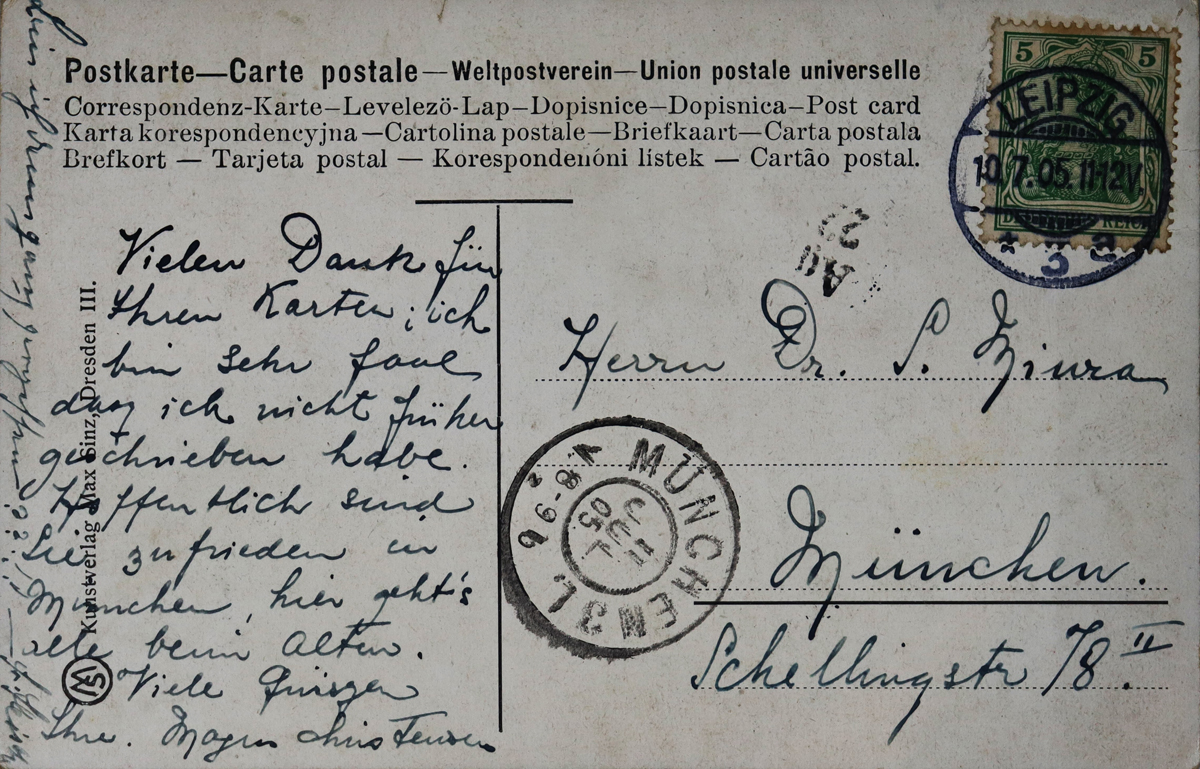 Postkarte—Carte postale—Weltpostverein—Union postale universelle
Correspondenz-Karte—Levelező-Lap—Dopisnice—Dopisnica—Post card
Karta korespondencyjna—Cartolina postale—Briefkaart—Carta postala
Brefkort — Tarjeta postal — Korespondenóni lístek — Cartão postal.
5 5
DEUTSCHES REICH
LEIPZIG
10.7.05.11-12V.
* 3 a
Vielen Dank für
Ihren Karten; ich
bin sehr faul
dasz ich nicht früher
geschrieben habe.
Hoffentlich sind
Sie zufrieden in
München, hier geht's
alle beim Alten.
Viele Grüszen
Ihre. Magnus Christensen
Kunstverlag Max Sinz, Dresden III.
Herrn Dr. S. Miura
München.
Schellingstr 78 II
MÜNCHEN
11 JUL 05
V. 8-9